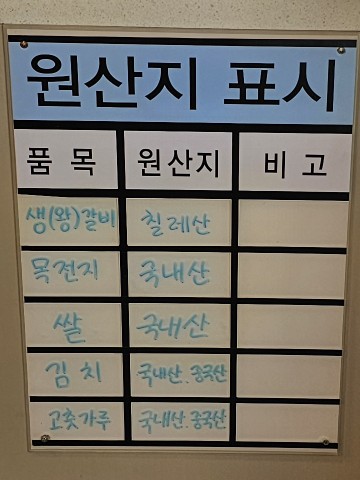 원산지 표시
품 목 원산지 비 고
생(왕)갈비 칠레산
목전지 국내산
쌀 국내산
김 치 국내산.중국산
고춧가루 국내산.중국산